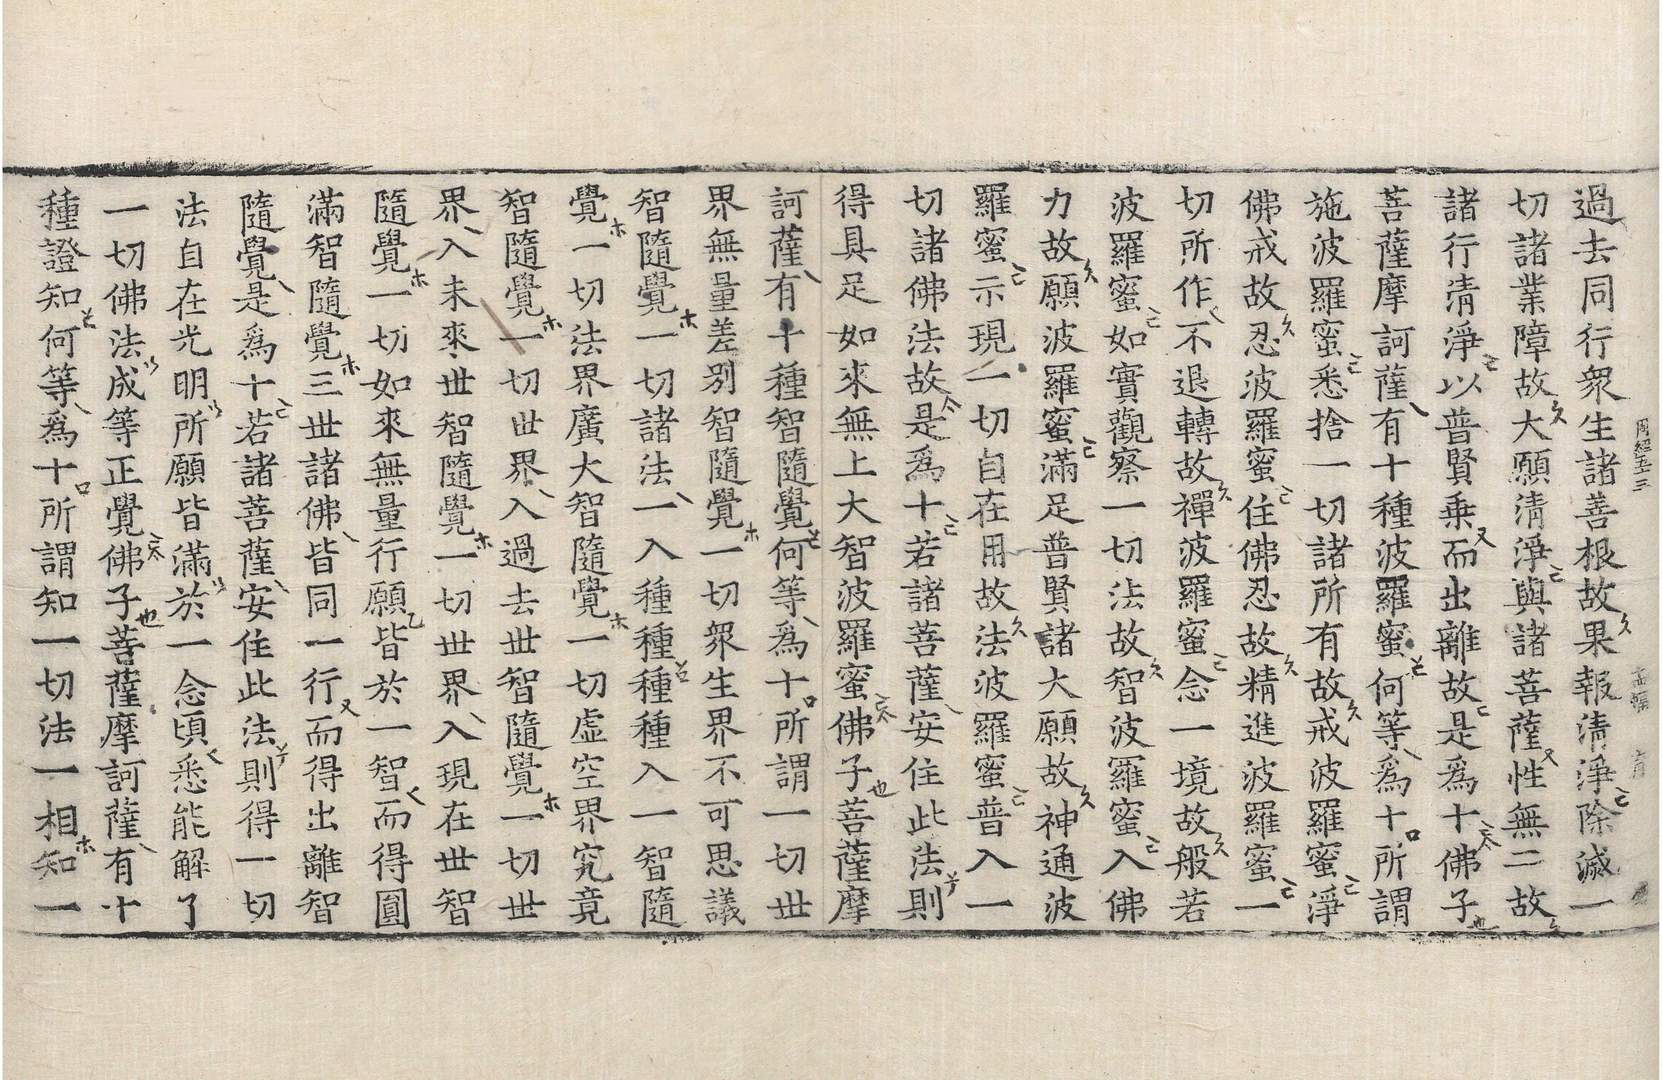 過去同行衆生諸善根故果報清淨除滅一
切諸業障故大願清淨與諸菩薩性無二故
諸行清淨以普賢乗而出離故是爲十佛子
菩薩摩訶薩有十種波羅蜜何等爲十所謂
施波羅蜜悉捨一切諸所有故戒波羅蜜淨
佛戒故忍波羅蜜住佛忍故精進波羅蜜一
切所作不退轉故禪波羅蜜念一境故般若
波羅蜜如實觀察一切法故智波羅蜜入佛
力故願波羅蜜滿足普賢諸大願故神通波
羅蜜示現一切自在用故法波羅蜜普入一
切諸佛法故是爲十若諸菩薩安住此法則
得具足如來無上大智波羅蜜佛子菩薩摩
訶薩有十種智隨覺何等爲十所謂一切世
界無量差別智隨覺一切衆生界不可思議
智隨覺一切諸法一入種種種種入一智隨
覺一切法界廣大智隨覺一切虛空界究竟
智隨覺一切世界入過去世智隨覺一切世
界入未來世智隨覺一切世界入現在世智
隨覺一切如來無量行願皆於一智而得圓
滿智隨覺三世諸佛皆同一行而得出離智
隨覺是爲十若諸菩薩安住此法則得一切
法自在光明所願皆滿於一念頃悉能解了
一切佛法成等正覺佛子菩薩摩訶薩有十
種證知何等爲十所謂知一切法一相知一